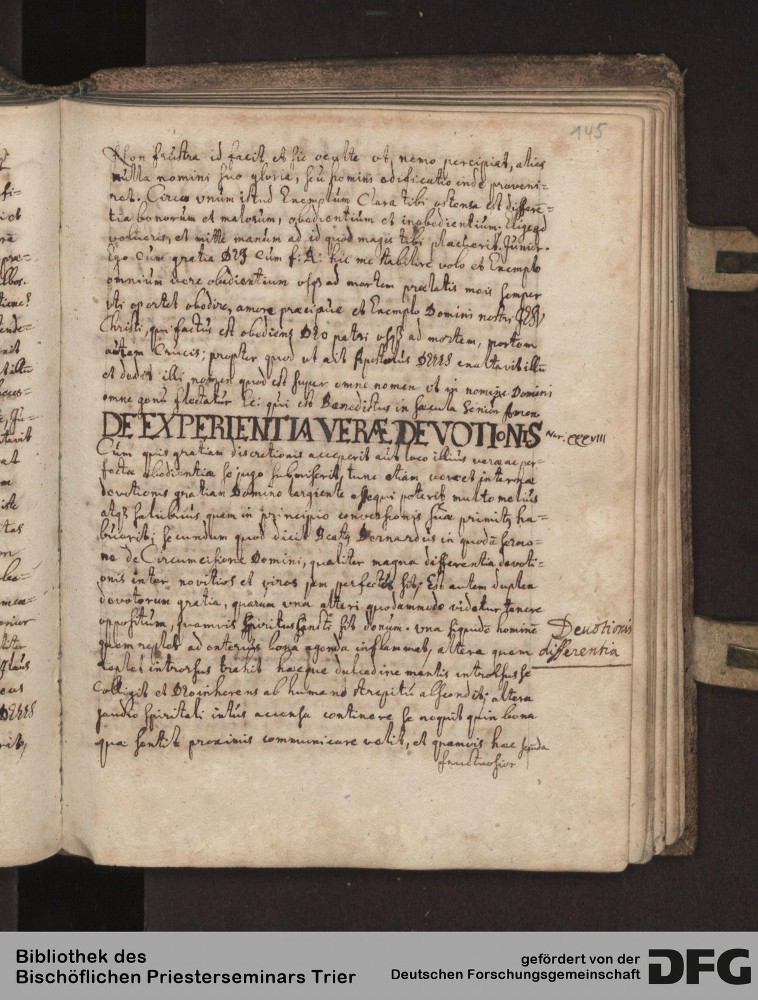 145
Non frustra id facit, et sic occulte ut, nemo percipiat, alias
nulla nomini suo gloria, seu homini edificatio inde proveni=
ret. Circa unum istud Exemplum Clara tibi ostensa est differē=
tia bonorum et malorum, obedientium et inobedientium. Elige
volueris, et mitte manum ad id quod magis tibi placuerit. Junior.
Ego Cum gratia DEI Cum f: A: hic me stabilire volo et Exemplo
omnium vere obedientium usq3 ad mortem prelatis meis semper
uti oportet obedire, amore praecipue et Exemplo Domini nostri JESV
Christi, qui factus est obediens DEO patri usq3 ad mortem, mortem
autem Crucis; propter quod ut ait Apostolus DEUS exaltavit illū
et dedit illi nomen quod est super omne nomen ut in nomine Domini
omne genu flectatur &c: qui est Benedictus in saecula Senior Amen
DE EXPERIENTIA VERÆ DEVOTIONIS Nar: CCCVIII
Cum quis gratiam discretionis acceperit aut loco illius verae ac per=
fectae obedientiae se jugo submiserit, tunc etiam verae et internae
devotionis gratiam Domino largiente assequi poterit multo melius
atq3 salubrius quam in principio conversionis suae primitus ha=
buerit; secundum quod dicit Beatus Bernardus in quodā sermo=
ne de Circumcisione Domini, qualiter magna differentia devoti=
onis inter novitios et viros jam perfectos sit. Est autem duplex
devotorum gratia, quarum una alteri quodammodo videtur tenere
oppositum, quamvis Spiritus Sancti sit donum. una siquidē hominē
quem replet ad exterius bona agenda inflammat, altera quem
replet introrsus trahit haecque dulcedine mentis introrsus se
Colligit et DEO inherens ab humano strepitu abscondit; altera
gaudio Spirituali intus accensa continere se nequit quin bona
quae sentit proximis communicare velit, et quamvis haec secūda
fructuosior
Devotionis
differentia
Bibliothek des
Bischöflichen Priesterseminars Trier
gefördert von der
Deutschen Forschungsgemeinschaft
DFG